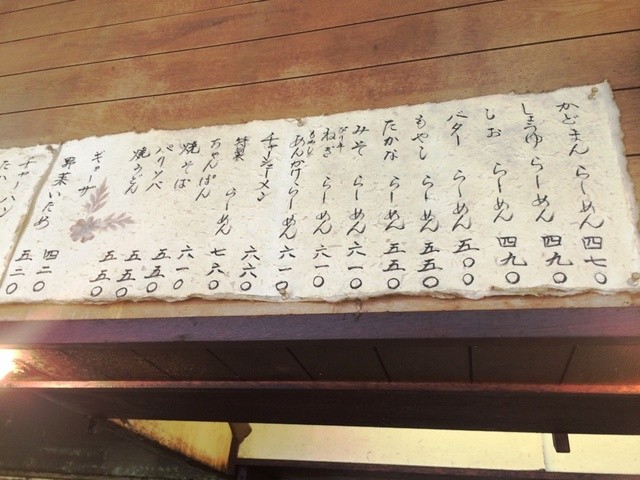 かどまん らーめん 四七〇
しょうゆ らーめん 四九〇
しお らーめん 四九〇
バター らーめん 五〇〇
もやし らーめん 五五〇
たかな らーめん 五五〇
みそ らーめん 六一〇
ピリ辛 ねぎ らーめん 六一〇
もやし あんかけらーめん 六一〇
チャーシューメン 六六〇
特製 らーめん 七六〇
ちゃんぽん 六一〇
焼そば 五五〇
パリソバ 五五〇
焼うどん 五五〇
ギョーザ
野菜いため 四二〇
チャーハン 五二〇